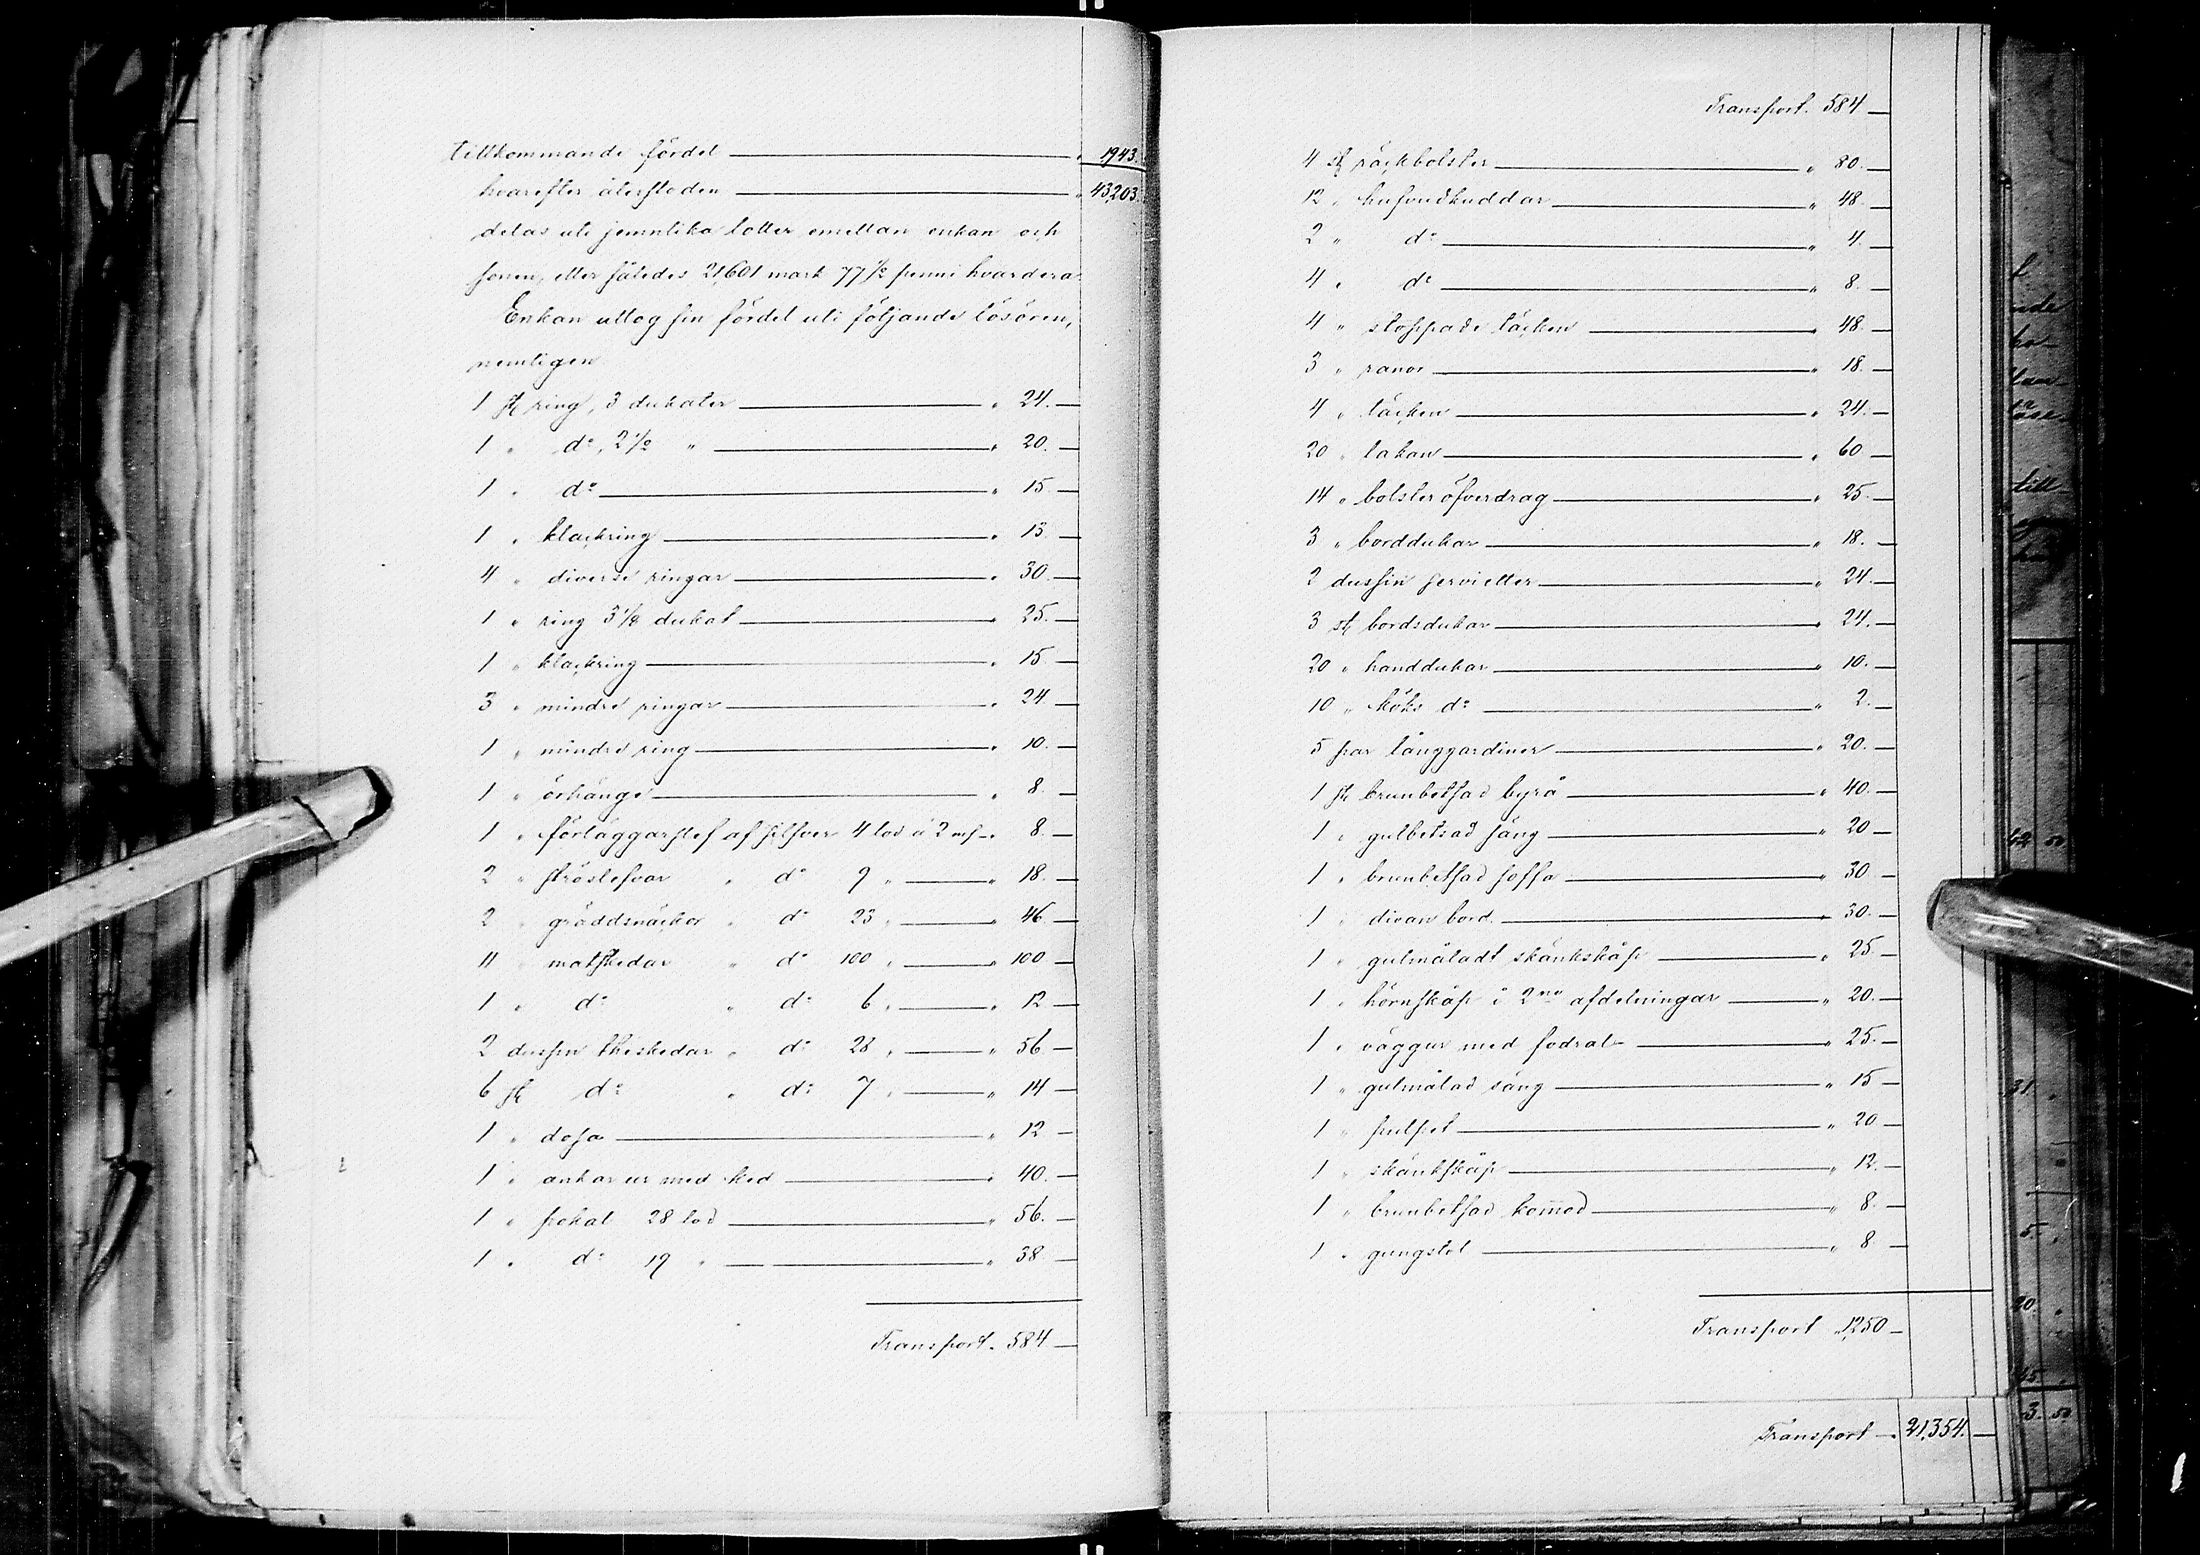 tillkommande fördel „ 1943.
hvarefter återstoden „ 43,203.
delas uti jemnlika lotter emellan enkan och
sonen, eller således 21,601 mark 77 1/2 penni hvardera
Enkan uttog sin fördel uti följande lösören,
nemligen
1 st ring, 3 dukater „ 24. —
1 „ d:o, 2 1/2 „ „ 20. —
1 „ d:o „ 15 —
1 „ klackring „ 13. —
4 „ diverse ringar „ 30. —
1 „ ring 3 1/2 dukat „ 25. —
1 „ klackring „ 15 —
3 „ mindre ringar „ 24 —
1 „ mindre ring „ 10. —
1 „ örhänge „ 8. —
1 „ förläggarslef af silfver 4 lod á 2 mf „ 8. —
2 „ ströslefvar „ d:o 9 „ „ 18. —
2 „ gräddsnäckor „ d:o 23 „ „ 46. —
11 „ matskedar „ d:o 100 „ „ 100 —
1 „ d:o „ d:o 6 „ „ 12 —
2 dussin theskedar „ d:o 28 „ „ 56 —
6 st d:o „ d:o 7 „ „ 14 —
1 „ dosa „ 12 —
1 „ ankar ur med ked „ 40. —
1 „ pokal 28 lod „ 56. —
1 „ d:o 19 „ „ 38. —
Transport „ 584 —
Transport „ 584 —
4 st räckbolster „ 80. —
12 „ hufvudkuddar „ 48. —
2 „ d:o „ 4. —
4 „ d:o „ 8. —
4 „ stoppade täcken „ 48. —
3 „ ranor „ 18. —
4 „ täcken „ 24. —
20 „ lakan „ 60 —
14 „ bolsteröfverdrag „ 25. —
3 „ borddukar „ 18. —
2 dussin servietter „ 24. —
3 st bordsdukar „ 24. —
20 „ handdukar „ 10. —
10 „ köks d:o „ 2. —
5 par långgardiner „ 20. —
1 st brunbetsad byrå „ 40. —
1 „ gulbetsad säng „ 20 —
1 „ brunbetsad soffa „ 30 —
1 „ divan bord „ 30. —
1 „ gulmåladt skänkskåp „ 25. —
1 „ hörnskåp i 2ne afdelningar „ 20. —
1 „ väggur med fodral „ 25. —
1 „ gulmålad säng „ 15 —
1 „ pulpet „ 20 —
1 „ skänkskåp „ 12. —
1 „ brunbetsad kommod „ 8. —
1 „ gungstol „ 8 —
Transport „ 1,250 —
Transport „ 21,354. —